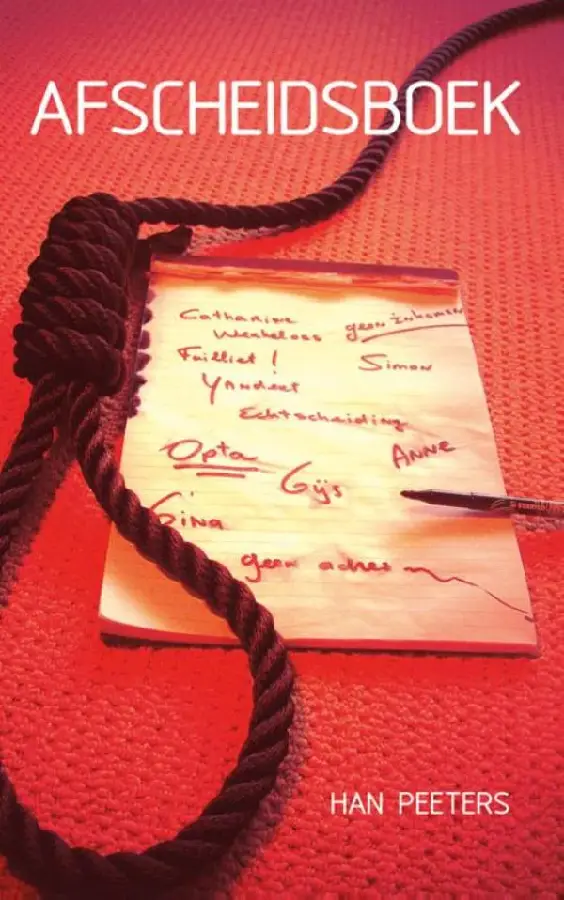 AFSCHEIDSBOEK
Catharine
Werkeloos geen inkomen
Failliet! Simon
Yandert
Echtscheiding
Opta ANNE
Gijs
Gina
geen adres
HAN PEETERS